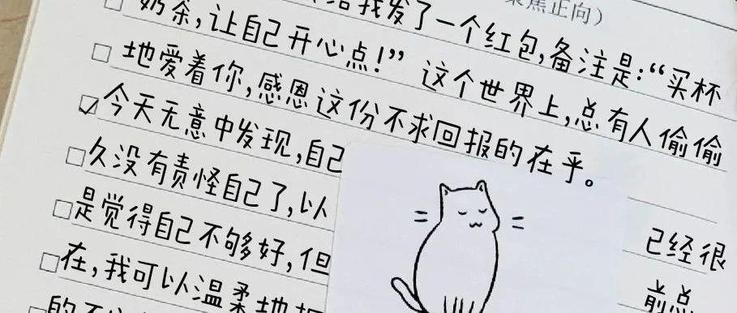 聚焦正向）
给我发了一个红包，备注是：“买杯
奶茶，让自己开心点！” 这个世界上，总有人偷偷
地爱着你，感恩这份不求回报的在乎。
今天无意中发现，自己 已经很
久没有责怪自己了，以 前总
是觉得自己不够好，但
在，我可以温柔地
的不